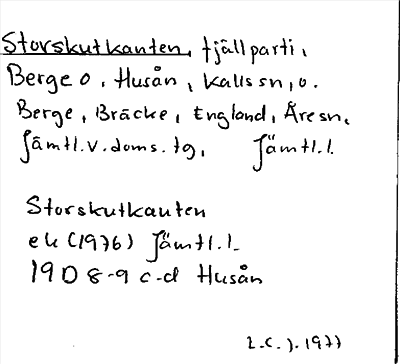 Storskutkanten, fjällparti,
Berge o. Husån, Kalls sn, o.
Berge, Bräcke, England, Åre sn,
Jämtl.v.doms.tg, Jämtl.l.
Storskutkanten
ek (1976) Jämtl.l.
19D 8-9 c-d Husån
1977